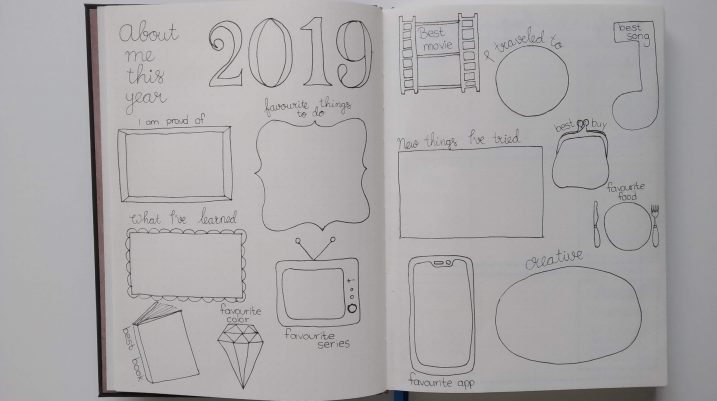 About
me
this
year
2019
I am proud of
favourite things
to do
What I've learned
best book
favourite
color
favourite
series
Best
movie
I traveled to
best
song
New things I've tried
best buy
favourite
food
favourite app
creative